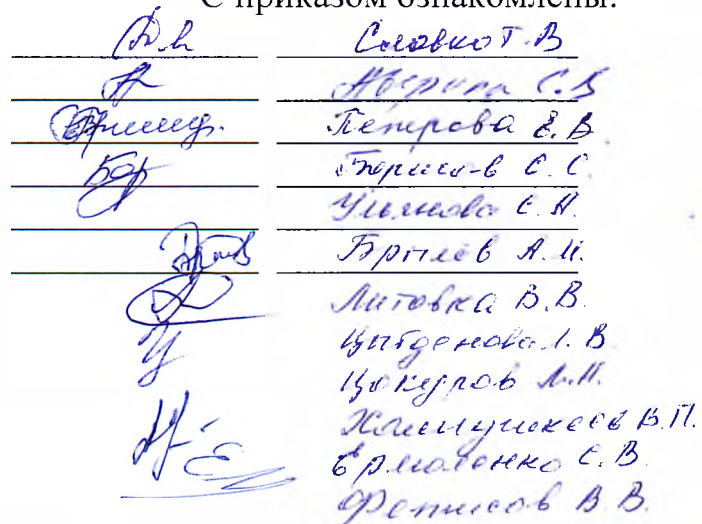 С приказом ознакомлены:
Словкот В
Аверина С.В
Петрова Е.В.
Борисов С.С.
Ульянова Е.А.
Брылёв А.И.
Литовка В.В.
Цыбденова . В
Цокуров А.П.
В.П.
Ермоленко С.В.
Фетисов В.В.